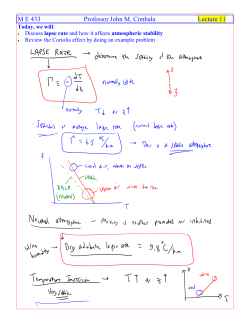 M E 433 Professor John M. Cimbala Lecture 11
Today, we will:
• Discuss lapse rate and how it affects atmospheric stability
• Review the Coriolis effect by doing an example problem
LAPSE RATE → determine the stability of the atmosphere
Γ = - dT/dz
normally T↓ as z↑
z
g
Standard or average lapse rate (normal lapse rate)
Γ = 6.5 °C/km → This is a stable atmosphere
z
T
Neutral atmosphere – Mixing is neither promoted or inhibited
Dry adiabatic lapse rate = 9.8 °C/km
Temperature Inversion → T↑ as z↑
Very stable
z
T